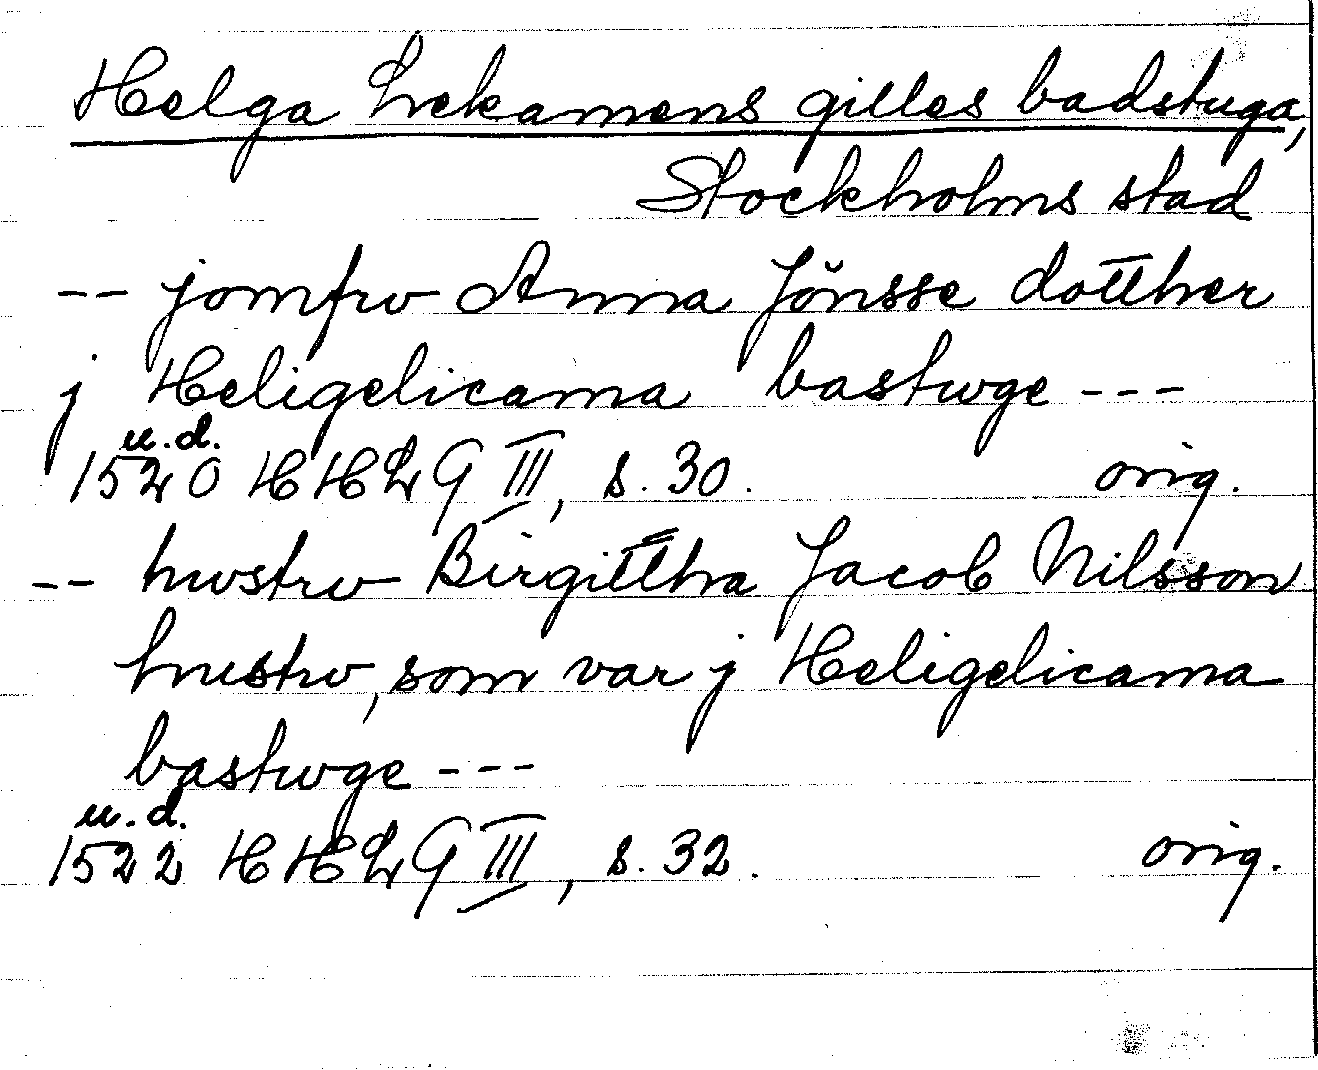 Helga Lekamens gilles badstuga,
Stockholms stad
-- jomfrv Anna Jönsse dotther
j Heligelicama bastwge ---
u.d.
1520 HHLG III, s. 30. orig.
-- hwstrv Birgittha Jacob Nilsson
hustrv, som var j Heligelicama
bastwge ---
u.d.
1522 HHLG III, s. 32. orig.